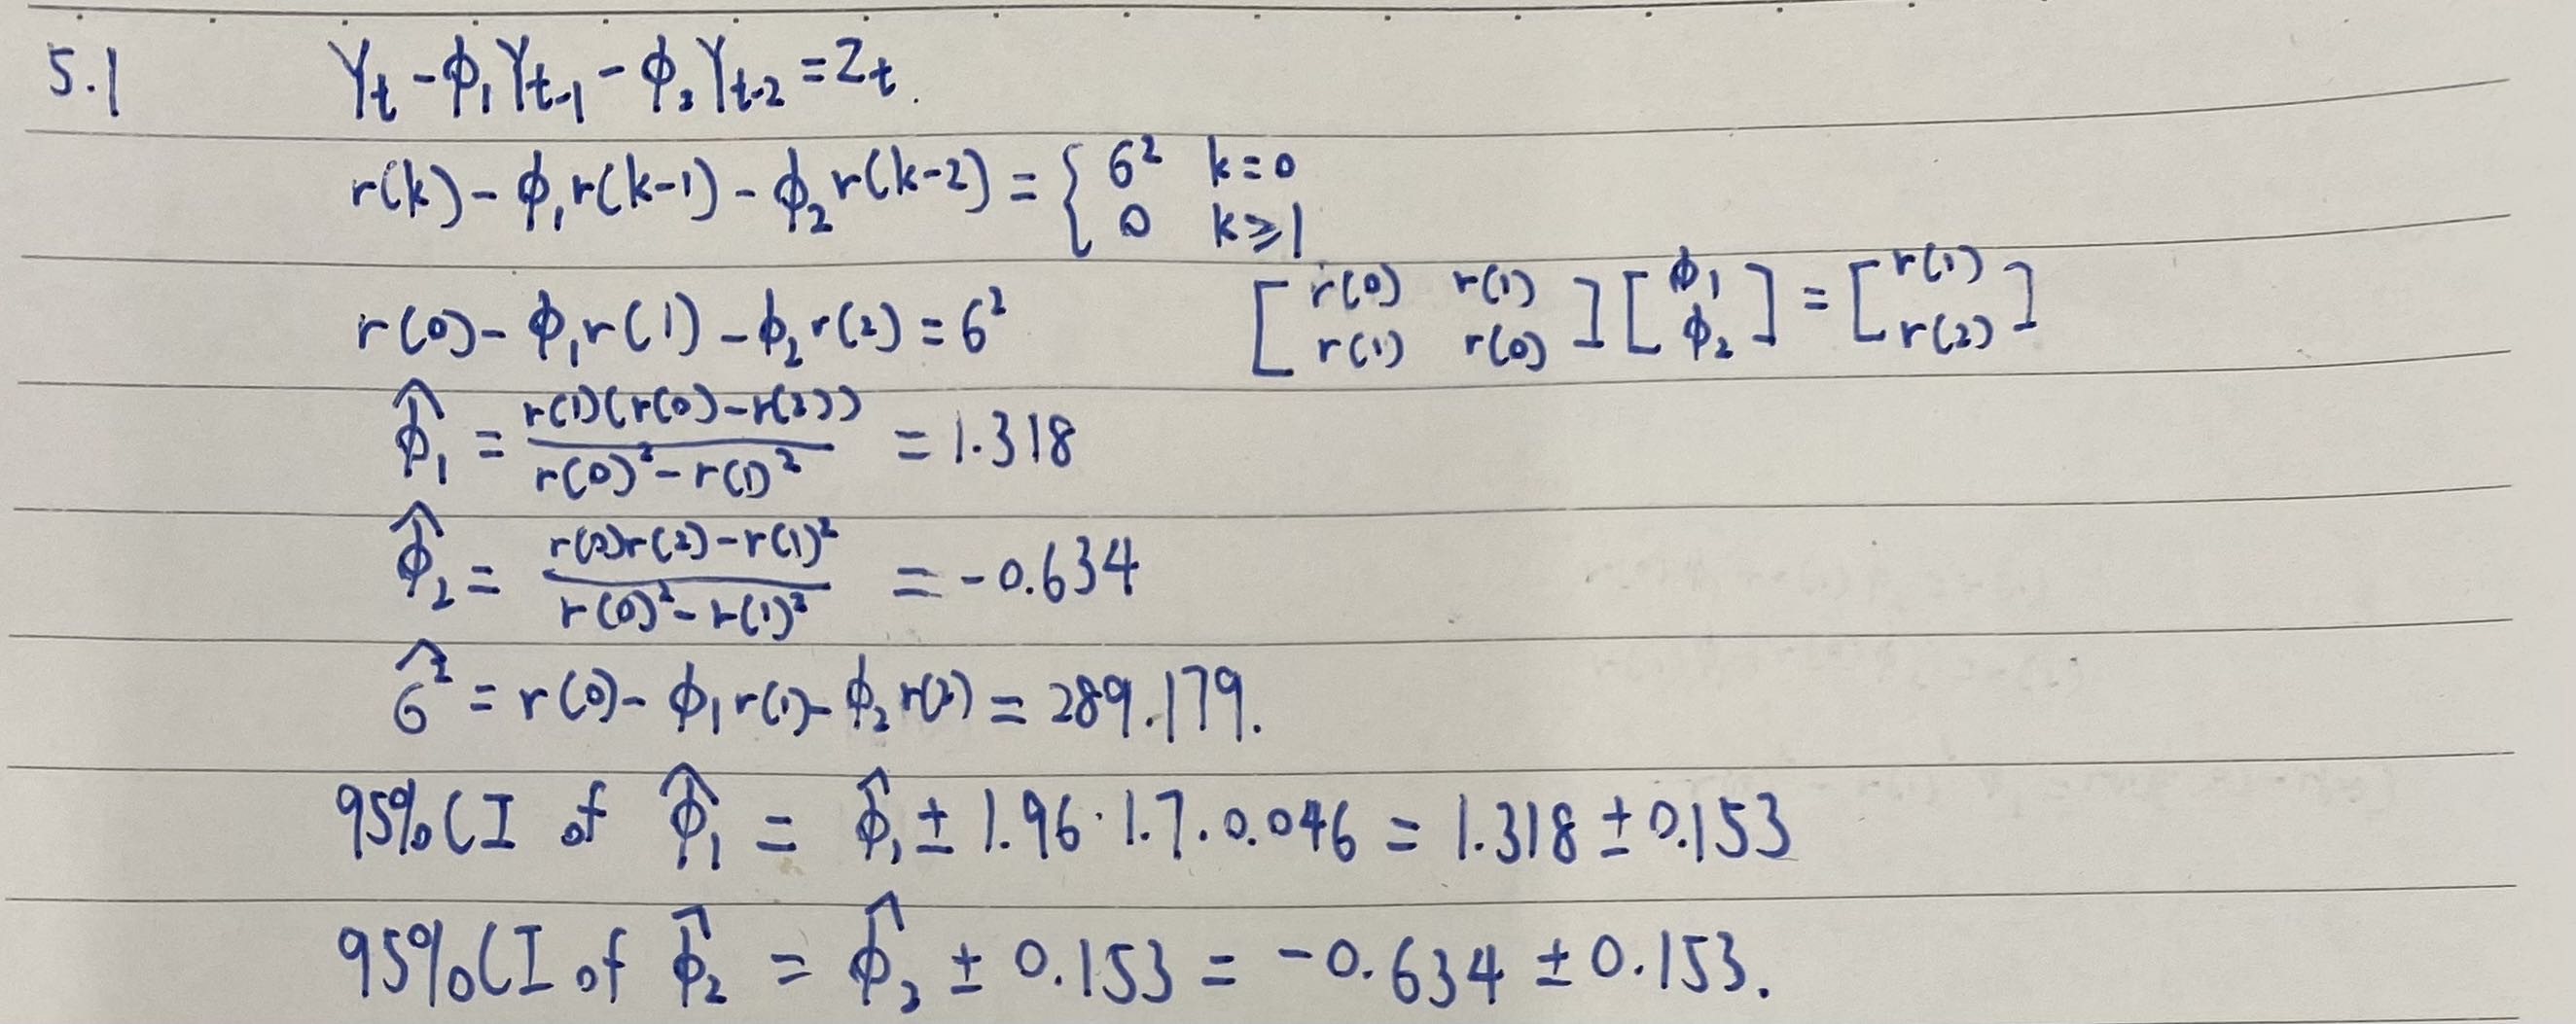 5.1 Yt - ϕ₁Yt-1 - ϕ₂Yt-2 = Zt.
r(k) - ϕ₁r(k-1) - ϕ₂r(k-2) = { 6² k=0
0 k≥1
r(0) - ϕ₁r(1) - ϕ₂r(2) = 6² [ r(0) r(1) ] [ ϕ₁ ] = [ r(1) ]
r(1) r(0) ϕ₂ r(2)
ϕ̂₁ = r(1)(r(0)-r(2)) / r(0)² - r(1)² = 1.318
ϕ̂₂ = r(0)r(2)-r(1)² / r(0)² - r(1)² = -0.634
6̂² = r(0) - ϕ₁r(1) - ϕ₂r(2) = 289.179.
95% CI of ϕ̂₁ = ϕ̂₁ ± 1.96·1.7·0.046 = 1.318 ± 0.153
95% CI of ϕ̂₂ = ϕ̂₂ ± 0.153 = -0.634 ± 0.153.